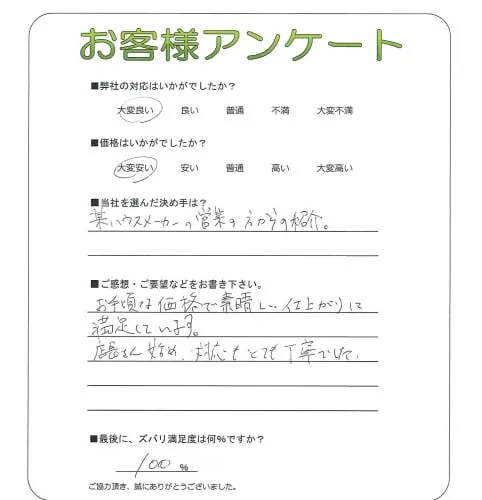 お客様アンケート
■弊社の対応はいかがでしたか？
大変良い 良い 普通 不満 大変不満
■価格はいかがでしたか？
大変安い 安い 普通 高い 大変高い
■当社を選んだ決め手は？
某ハウスメーカーの営業の方からの紹介。
■ご感想・ご要望などをお書き下さい。
お手頃な価格で素晴しい仕上がりに
満足しています。
店長さん始め、対応もとても丁寧でした。
■最後に、ズバリ満足度は何％ですか？
100 %
ご協力頂き、誠にありがとうございました。